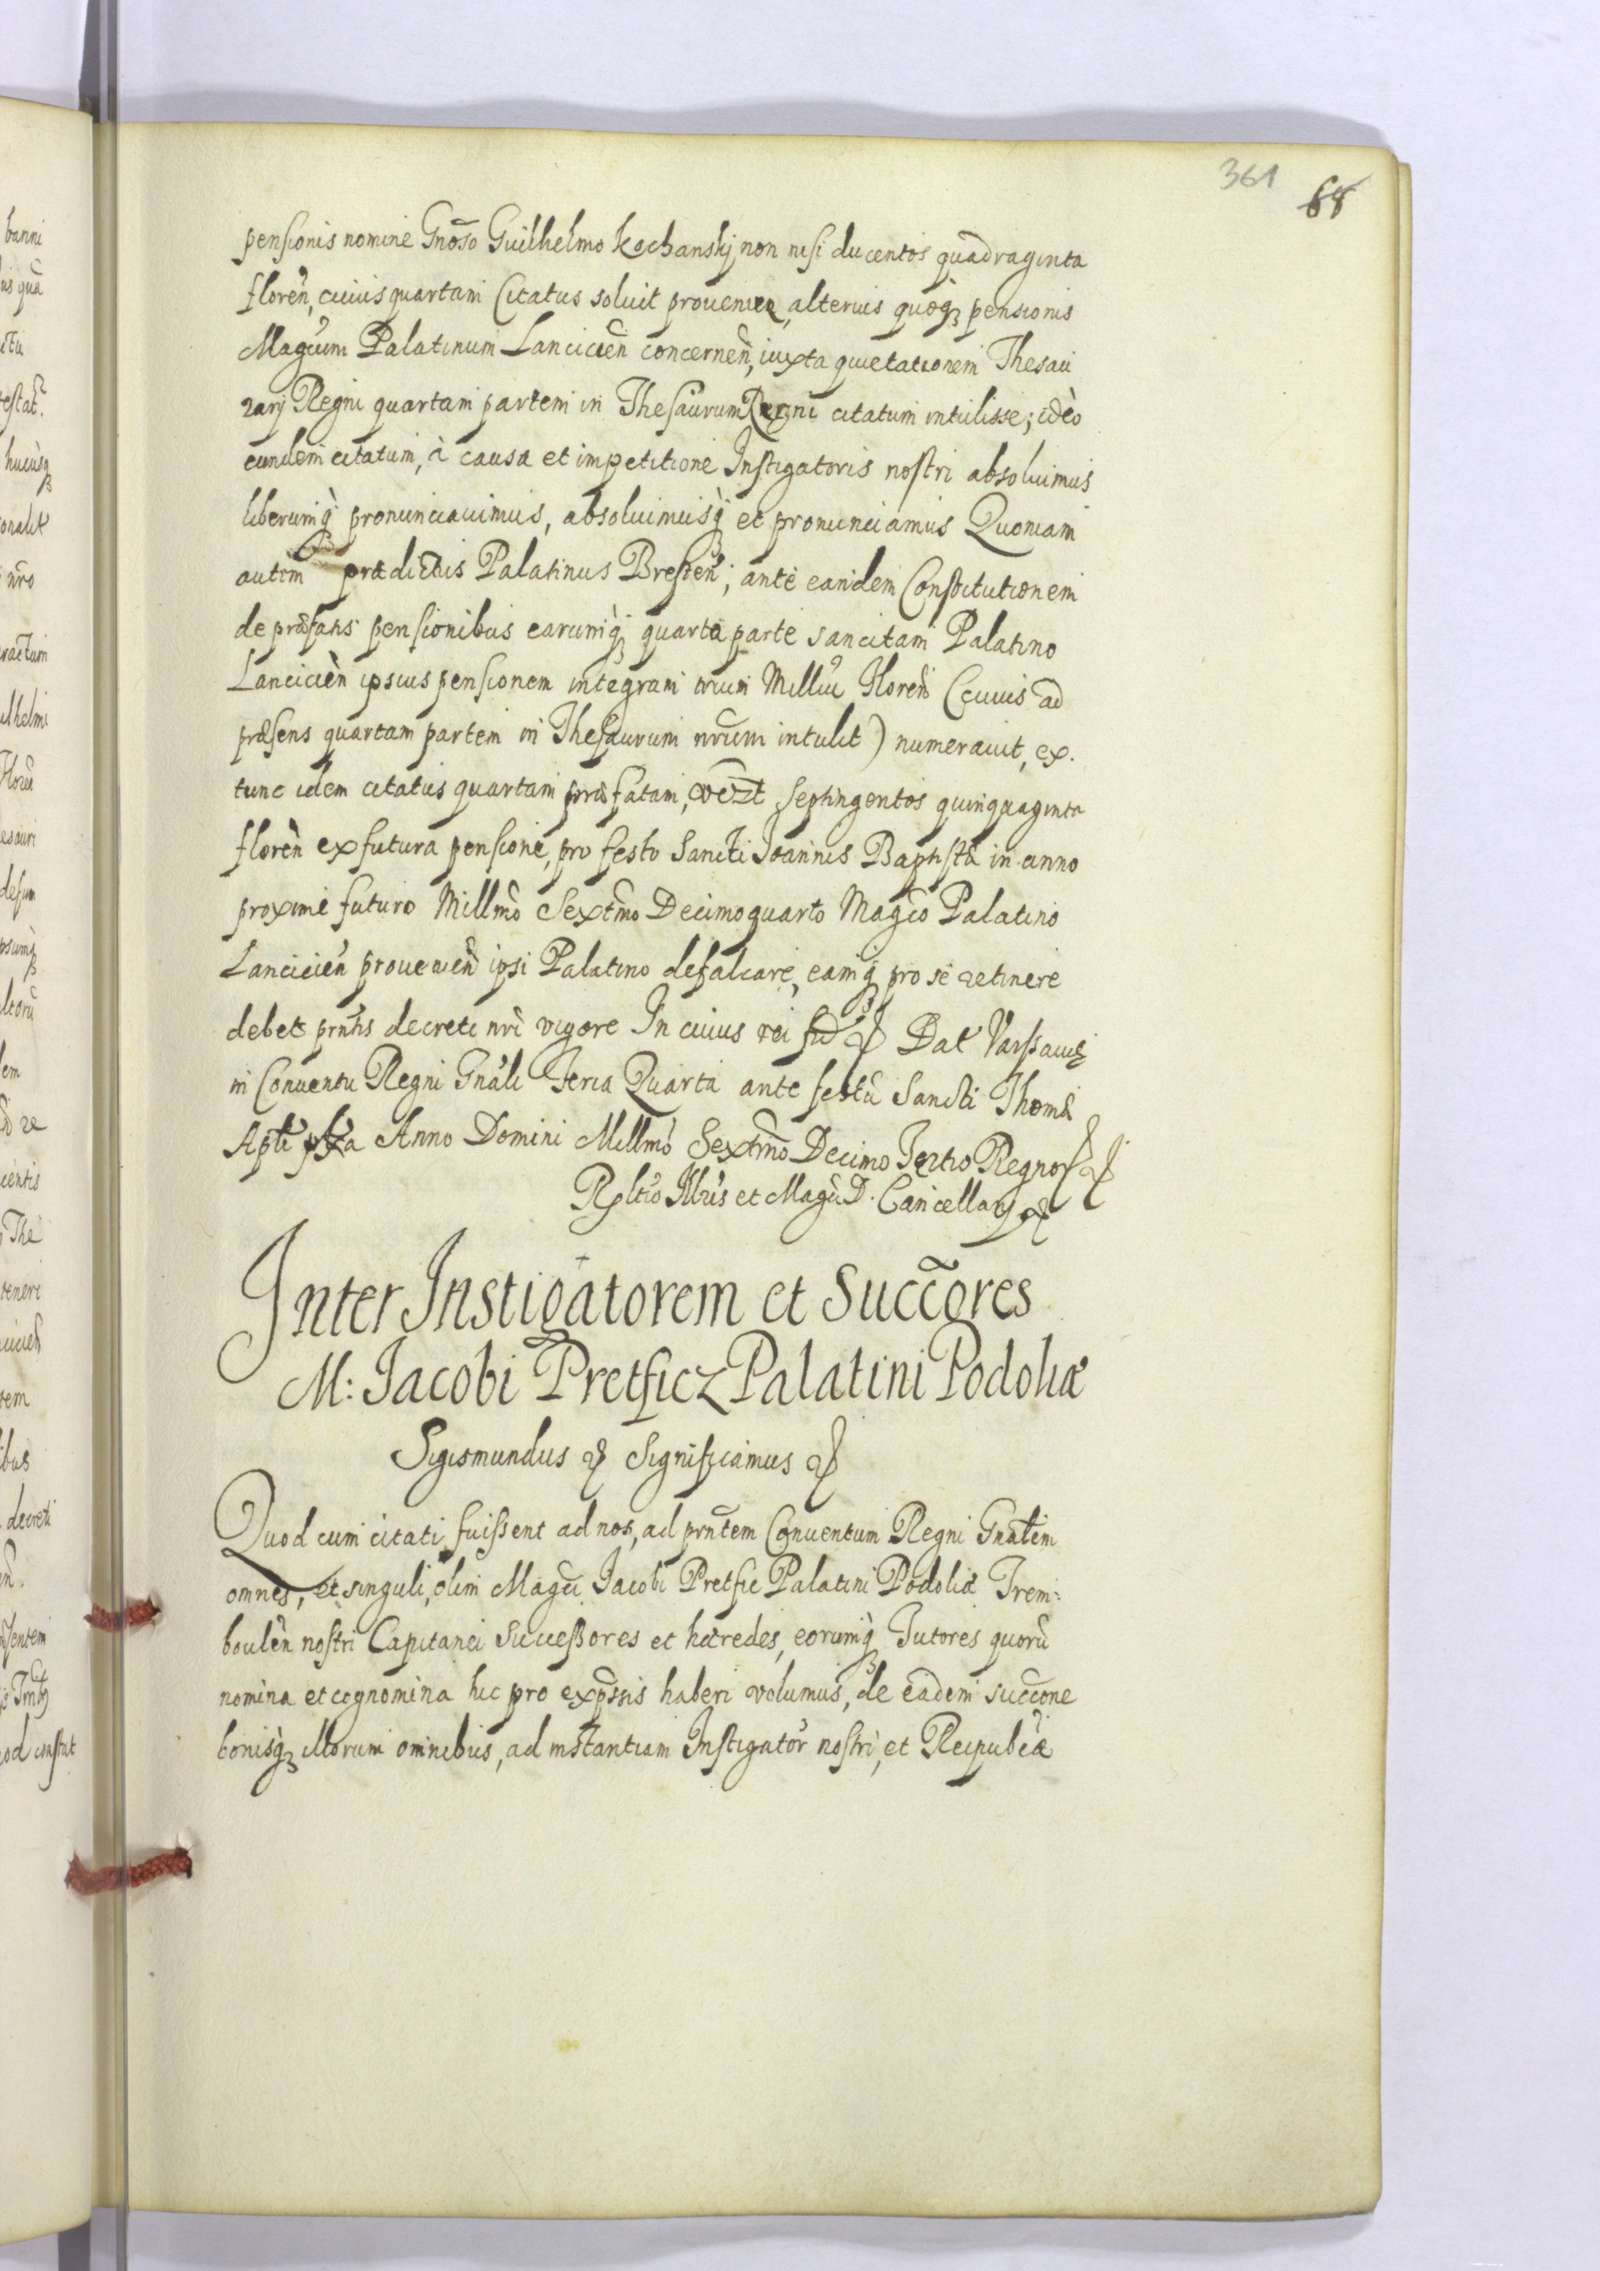 361 68
pensionis nomine Gnõso Guilhelmo Kochanskij non nisi ducentos quadraginta
floreñ, cuius quartam Citatus soluit prouenien, alterius quoq₃ pensionis
Magcum Palatinum Lancicień concerneñ, iuxta quietationem Thesau
rarij Regni quartam partem in Thesaurum Regni citatum intulisse; ideò
eundem citatum, à causa et impetitione Instigatoris nostri absoluimus
liberumq₃ pronunciauimus, absoluimusq₃ et pronunciamus Quoniam
autem prædictus Palatinus Bresteñ; ante eandem Constitutionem
de præfatis pensionibus earumq₃ quarta parte sancitam Palatino
Lancicień ipsius pensionem integram trium Milliũ Floreñ (cuius ad
præsens quartam partem in Thesaurum nrũm intulit) numerauit, ex
tunc idem citatus quartam præfatam, vdzt septingentos quinquaginta
floreñ ex futura pensione, pro festo Sancti Joannis Baptistæ in anno
proxime futuro Millmo Sextmo Decimoquarto Magco Palatino
Lancicień proueneń ipsi Palatino defalcare, eamq₃ pro se retinere
debet prñtis decreti nri vigore In cuius rei fid Dat Varssauiæ
in Conuentu Regni Gnali Feria Quarta ante festũ Sancti Thomæ
Apli pxa Anno Domini Millmo Sextmo Decimo Tertio Regno
Reltio Illris et Magci D. Cancellarij
Inter Instigatorem et Succõres
M: Jacobi Pretficz Palatini Podoliæ
Sigismundus Significamus
Quod cum citati fuissent ad nos, ad prñtem Conuentum Regni Gnalem
omnes, et singuli, olim Magci Jacobi Pretfic Palatini Podoliæ Trem:
bouleñ nostri Capitanei Successores et hæredes, eorumq₃ Tutores quorũ
nomina et cognomina hic pro expssis haberi volumus, de eadem succone
bonisq₃ illorum omnibus, ad instantiam Instigator nostri, et Reipubcæ